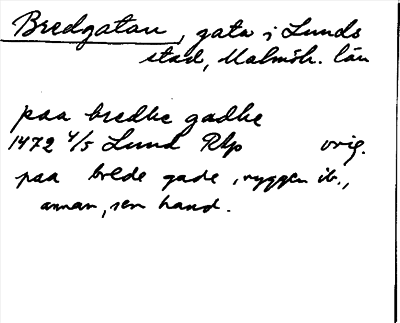 Bredgatan, gata i Lunds
stad, Malmöh. län
paa bredhe gadhe
1472 4/5 Lund Rlp orig.
paa brede gade, ryggen ib.,
annan, sen hand.